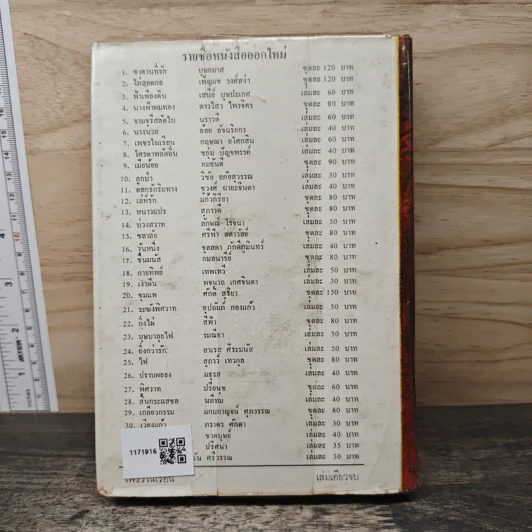 รายชื่อหนังสือออกใหม่
1. ซาตานที่รัก บุษยมาส ชุดละ 120 บาท
2. ไฟลอดกอ เพ็ญแข วงศ์สง่า ชุดละ 120 บาท
3. ฟ้าเพียงดิน เสนีย์ บุษปะเกศ เล่มละ 60 บาท
4. นางฟ้าผมทอง ดาวไสว ไพรจิตร ชุดละ 80 บาท
5. จามจุรีสลัดใบ นราวดี เล่มละ 60 บาท
6. นางนวล อ้อย อัจฉริยกร เล่มละ 40 บาท
7. เพชรในเรือน กฤษณา อโศกสิน เล่มละ 60 บาท
8. ชอุ่ม ปัญจพรรค์ เล่มละ 40 บาท
9. เมียน้อย ทมยันตี ชุดละ 90 บาท
10. ลูกบ้า เล่มละ 30 บาท
11. ดอกรักริมทาง ชูวงศ์ ฉายะจินดา เล่มละ 40 บาท
12. เล่ห์รัก แก้วกิริยา ชุดละ 80 บาท
13. สุภาวดี ชุดละ 80 บาท
14. บ่วงสวาท ลักษณ์ โรจนา เล่มละ 50 บาท
15. ชลาลัย ศรีฟ้า ลดาวัลย์ ชุดละ 80 บาท
16. วันหนึ่ง จุลลดา ภักดีภูมินทร์ เล่มละ 40 บาท
17. ชื่นมนัส กมลนารีย์ ชุดละ 80 บาท
18. กายทิพย์ เทพเทวี เล่มละ 50 บาท
19. เงาฝัน พจนาถ เกศจินดา เล่มละ 40 บาท
20. ขุมแพ ศักดิ์ สุริยา ชุดละ 150 บาท
21. ระฆังพิศวาท อุปถัมภ์ กองแก้ว เล่มละ 50 บาท
22. กิ่งไผ่ สีฟ้า ชุดละ 80 บาท
23. บุษบาลุยไฟ รมณียา เล่มละ 50 บาท
24. ยิ่งกว่ารัก ลาเรส ศิระมนัส เล่มละ 50 บาท
25. ไฟ สุภาว์ เทวกุล ชุดละ 80 บาท
26. ปราบพยอง มธุรส เล่มละ 40 บาท
27. พิศวาท ปรียนุช ชุดละ 60 บาท
28. สิ้นกระแสชล เล่มละ 40 บาท
29. เกลียวกรรม แกมกาญจน์ ศุภวรรณ ชุดละ 80 บาท
30. เวียงแก้ว ภราดร ศักดา เล่มละ 40 บาท
ชาตบุษย์ เล่มละ 40 บาท
ปริศนา เล่มละ 35 บาท
ศรีวรรณ เล่มละ 30 บาท
1171916
เพชรในเรือน เล่มเดียวจบ